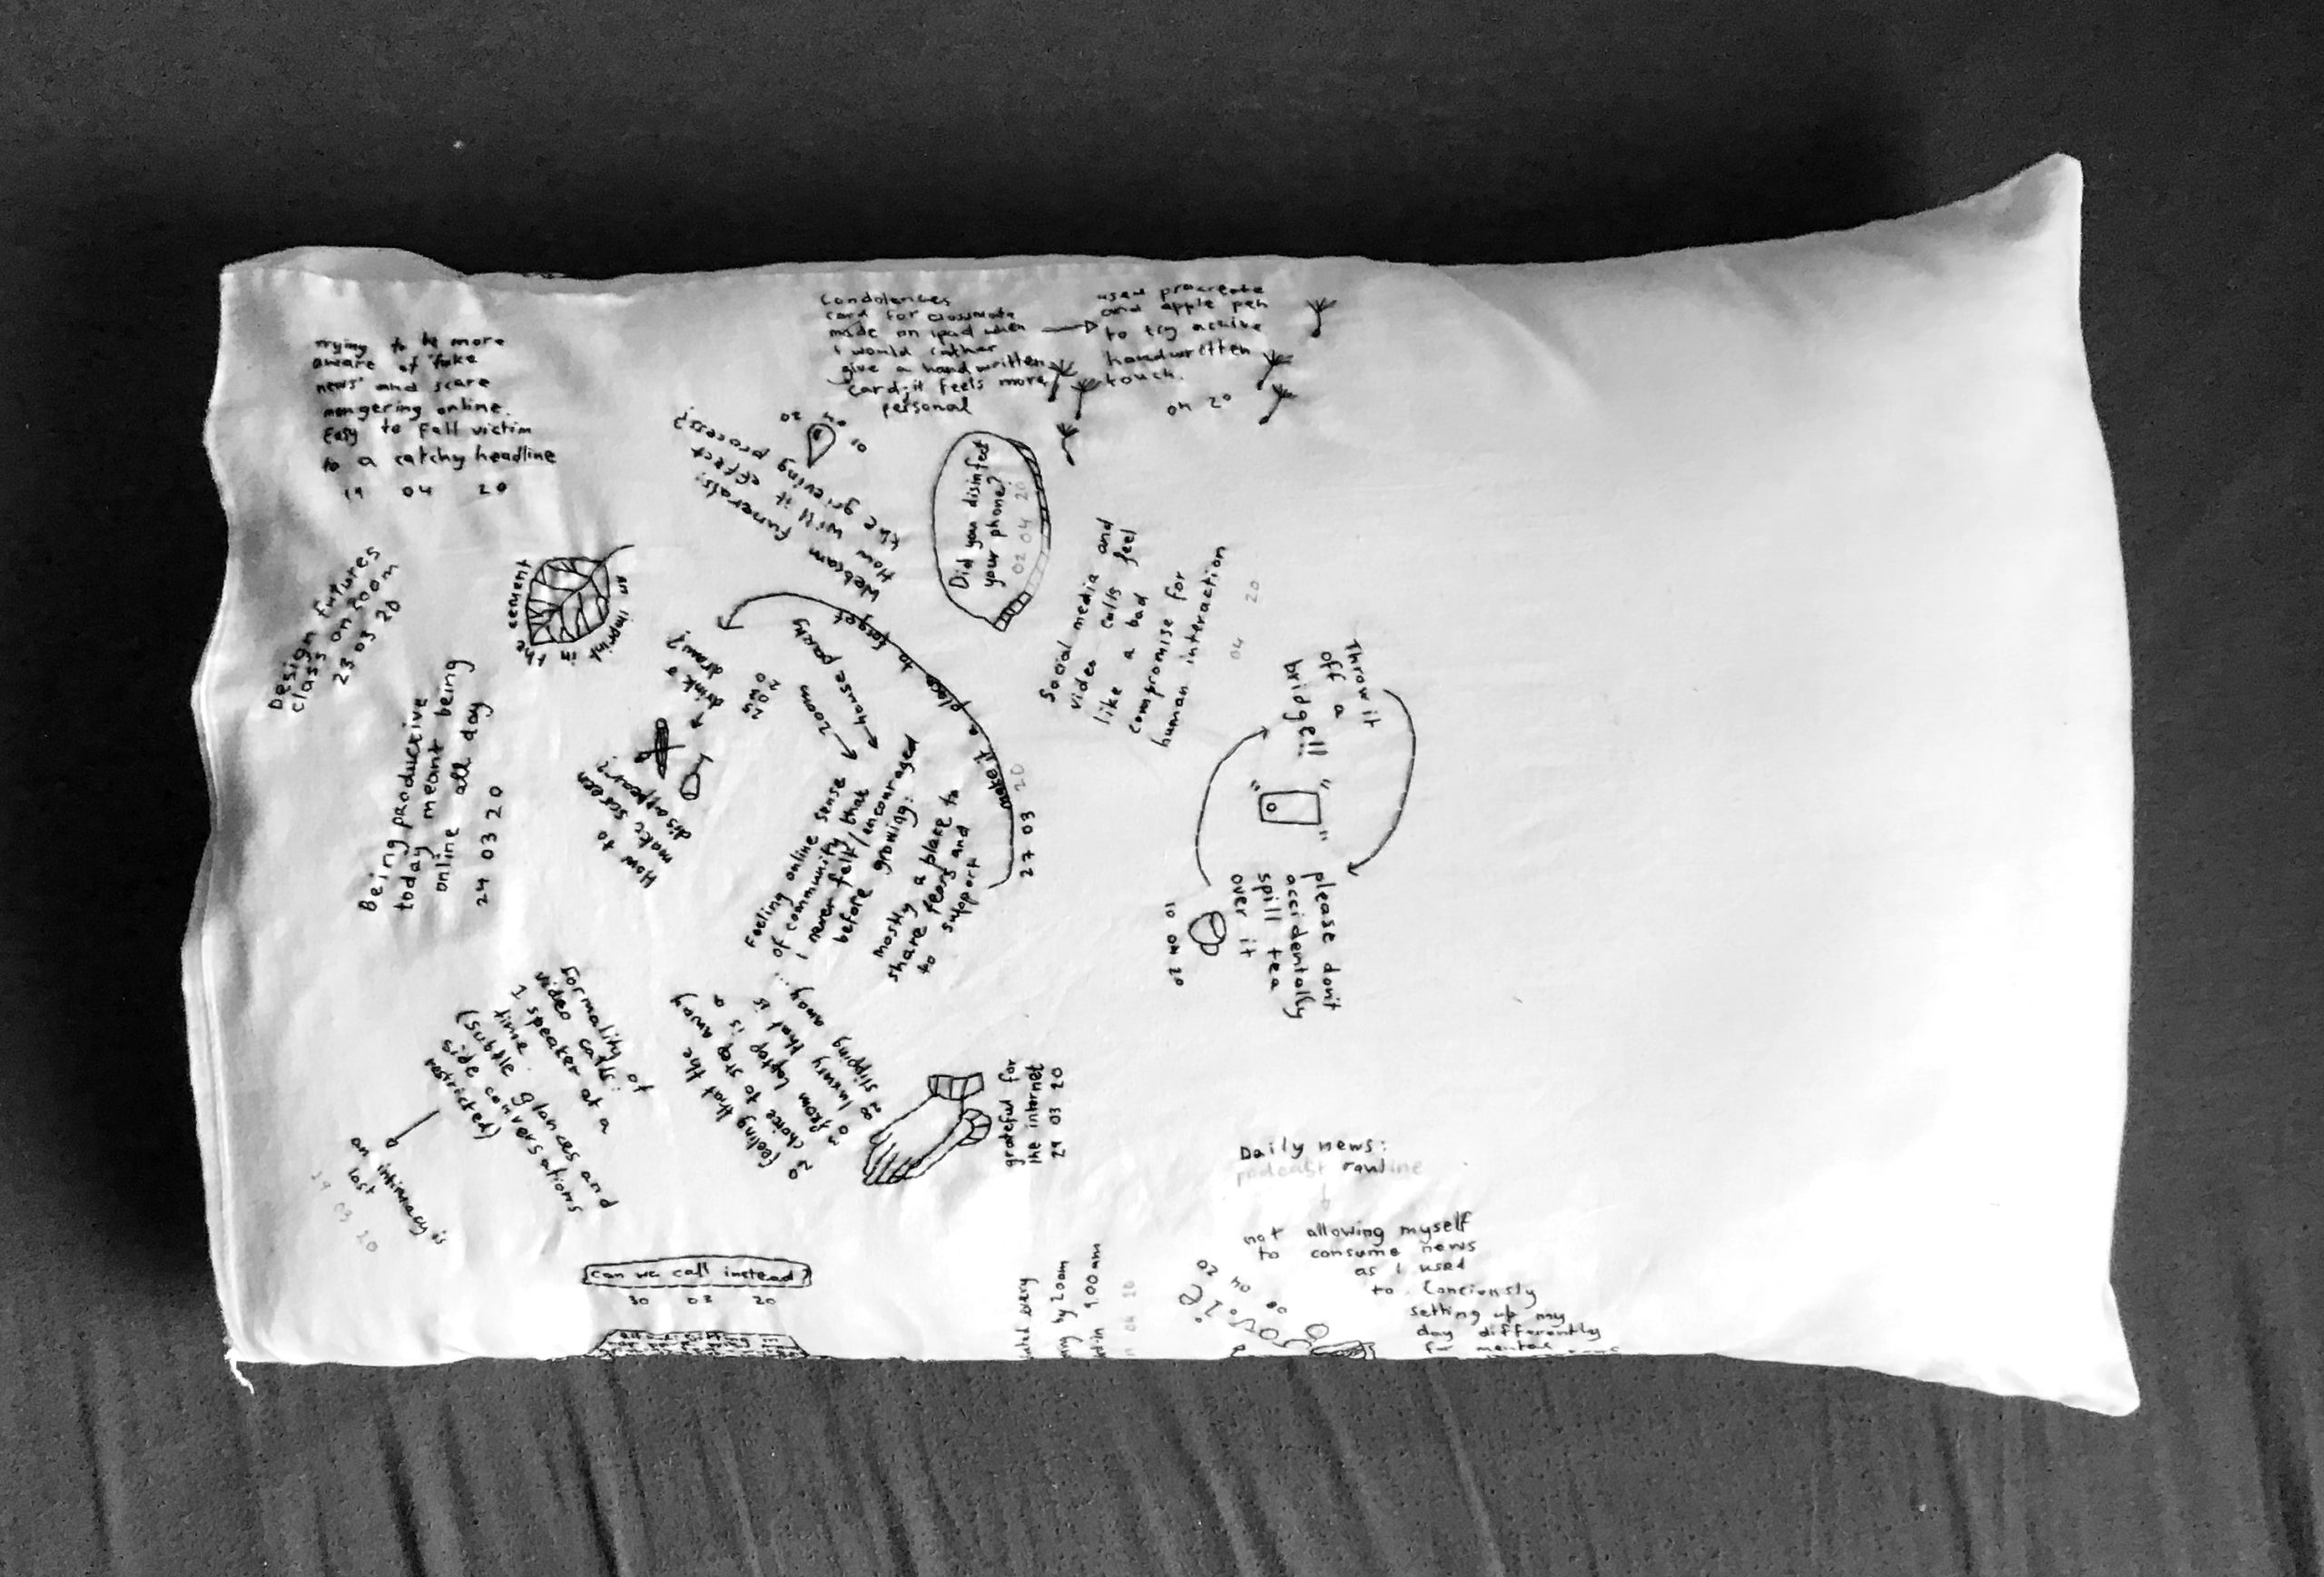 Trying to be more
aware of 'fake
news' and scare
mongering online.
Easy to fall victim
to a catchy headline
19 04 20
Condolences
card for classmate
made on ipad when
I would rather
give a handwritten
card; it feels more
personal
used procreate
and apple pen
to try achive
handwritten
touch.
04 20
Webcam funerals:
How will it effect
the grieving process?
01 04 20
Did you disinfect
your phone?
02 04 20
Design futures
class on zoom
23 03 20
an imprint
in the cement
Being productive
today meant being
online all day
24 03 20
How to
make screen
disappear?
drink &
draw?
zoom
house party
Feeling online sense
of community that
I never felt/encouraged
before growing:
mostly a place to
share fears and
to support
make it a place to forget
27 03 20
Social media and
video calls feel
like a bad
compromise for
human interaction
04 20
Throw it
off a
bridge!!
please don't
accidentally
spill tea
over it
10 04 20
Formality of
video calls:
1 speaker at a
time.
(subtle glances and
side conversations
restricted)
an intimacy is
lost
29 03 20
feeling that the
choice to step away
from laptop is a
luxury that is
slipping away...
grateful for
the internet
29 03 20
can we call instead?
30 03 20
every
by zoom
9.00am
Daily news:
podcast routine
not allowing myself
to consume news
as I used
to. Conciously
setting up my
day differently
for mental